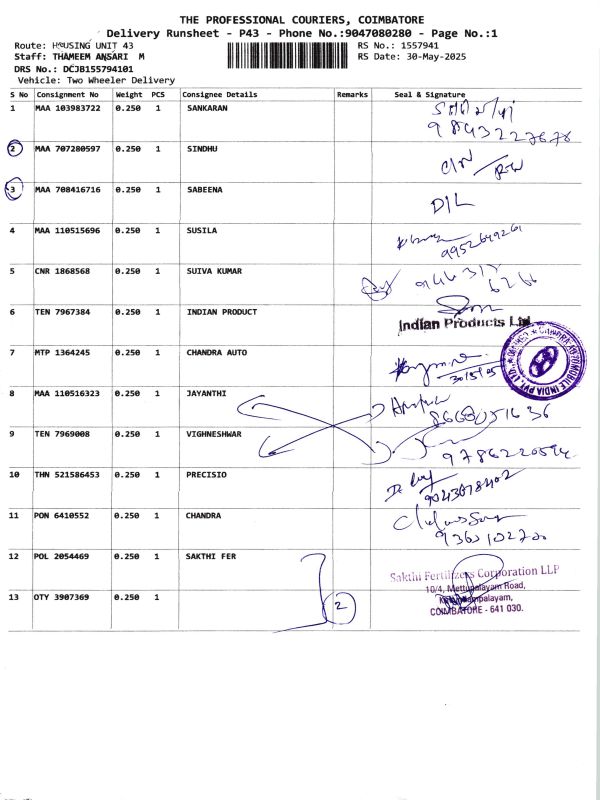 THE PROFESSIONAL COURIERS, COIMBATORE
Delivery Runsheet - P43 - Phone No.:9047080280 - Page No.:1
Route: HOUSING UNIT 43
RS No.: 1557941
Staff: THAMEEM ANSARI M
RS Date: 30-May-2025
DRS No.: DCJB155794101
Vehicle: Two Wheeler Delivery
S No Consignment No Weight PCS Consignee Details Remarks Seal & Signature
1 MAA 103983722 0.250 1 SANKARAN
9843227678
2 MAA 707280597 0.250 1 SINDHU
3 MAA 708416716 0.250 1 SABEENA
D/L
4 MAA 110515696 0.250 1 SUSILA
9952649261
5 CNR 1868568 0.250 1 SUIVA KUMAR
6 TEN 7967384 0.250 1 INDIAN PRODUCT
Indian Products Ltd.
7 MTP 1364245 0.250 1 CHANDRA AUTO
30/5/25
8 MAA 110516323 0.250 1 JAYANTHI
8668051636
9 TEN 7969008 0.250 1 VIGHNESHWAR
9786220594
10 THN 521586453 0.250 1 PRECISIO
9043078402
11 PON 6410552 0.250 1 CHANDRA
12 POL 2054469 0.250 1 SAKTHI FER
Sakthi Fertilizers Corporation LLP
10/4, Mettupalayam Road,
13 OTY 3907369 0.250 1
2
COIMBATORE - 641 030.